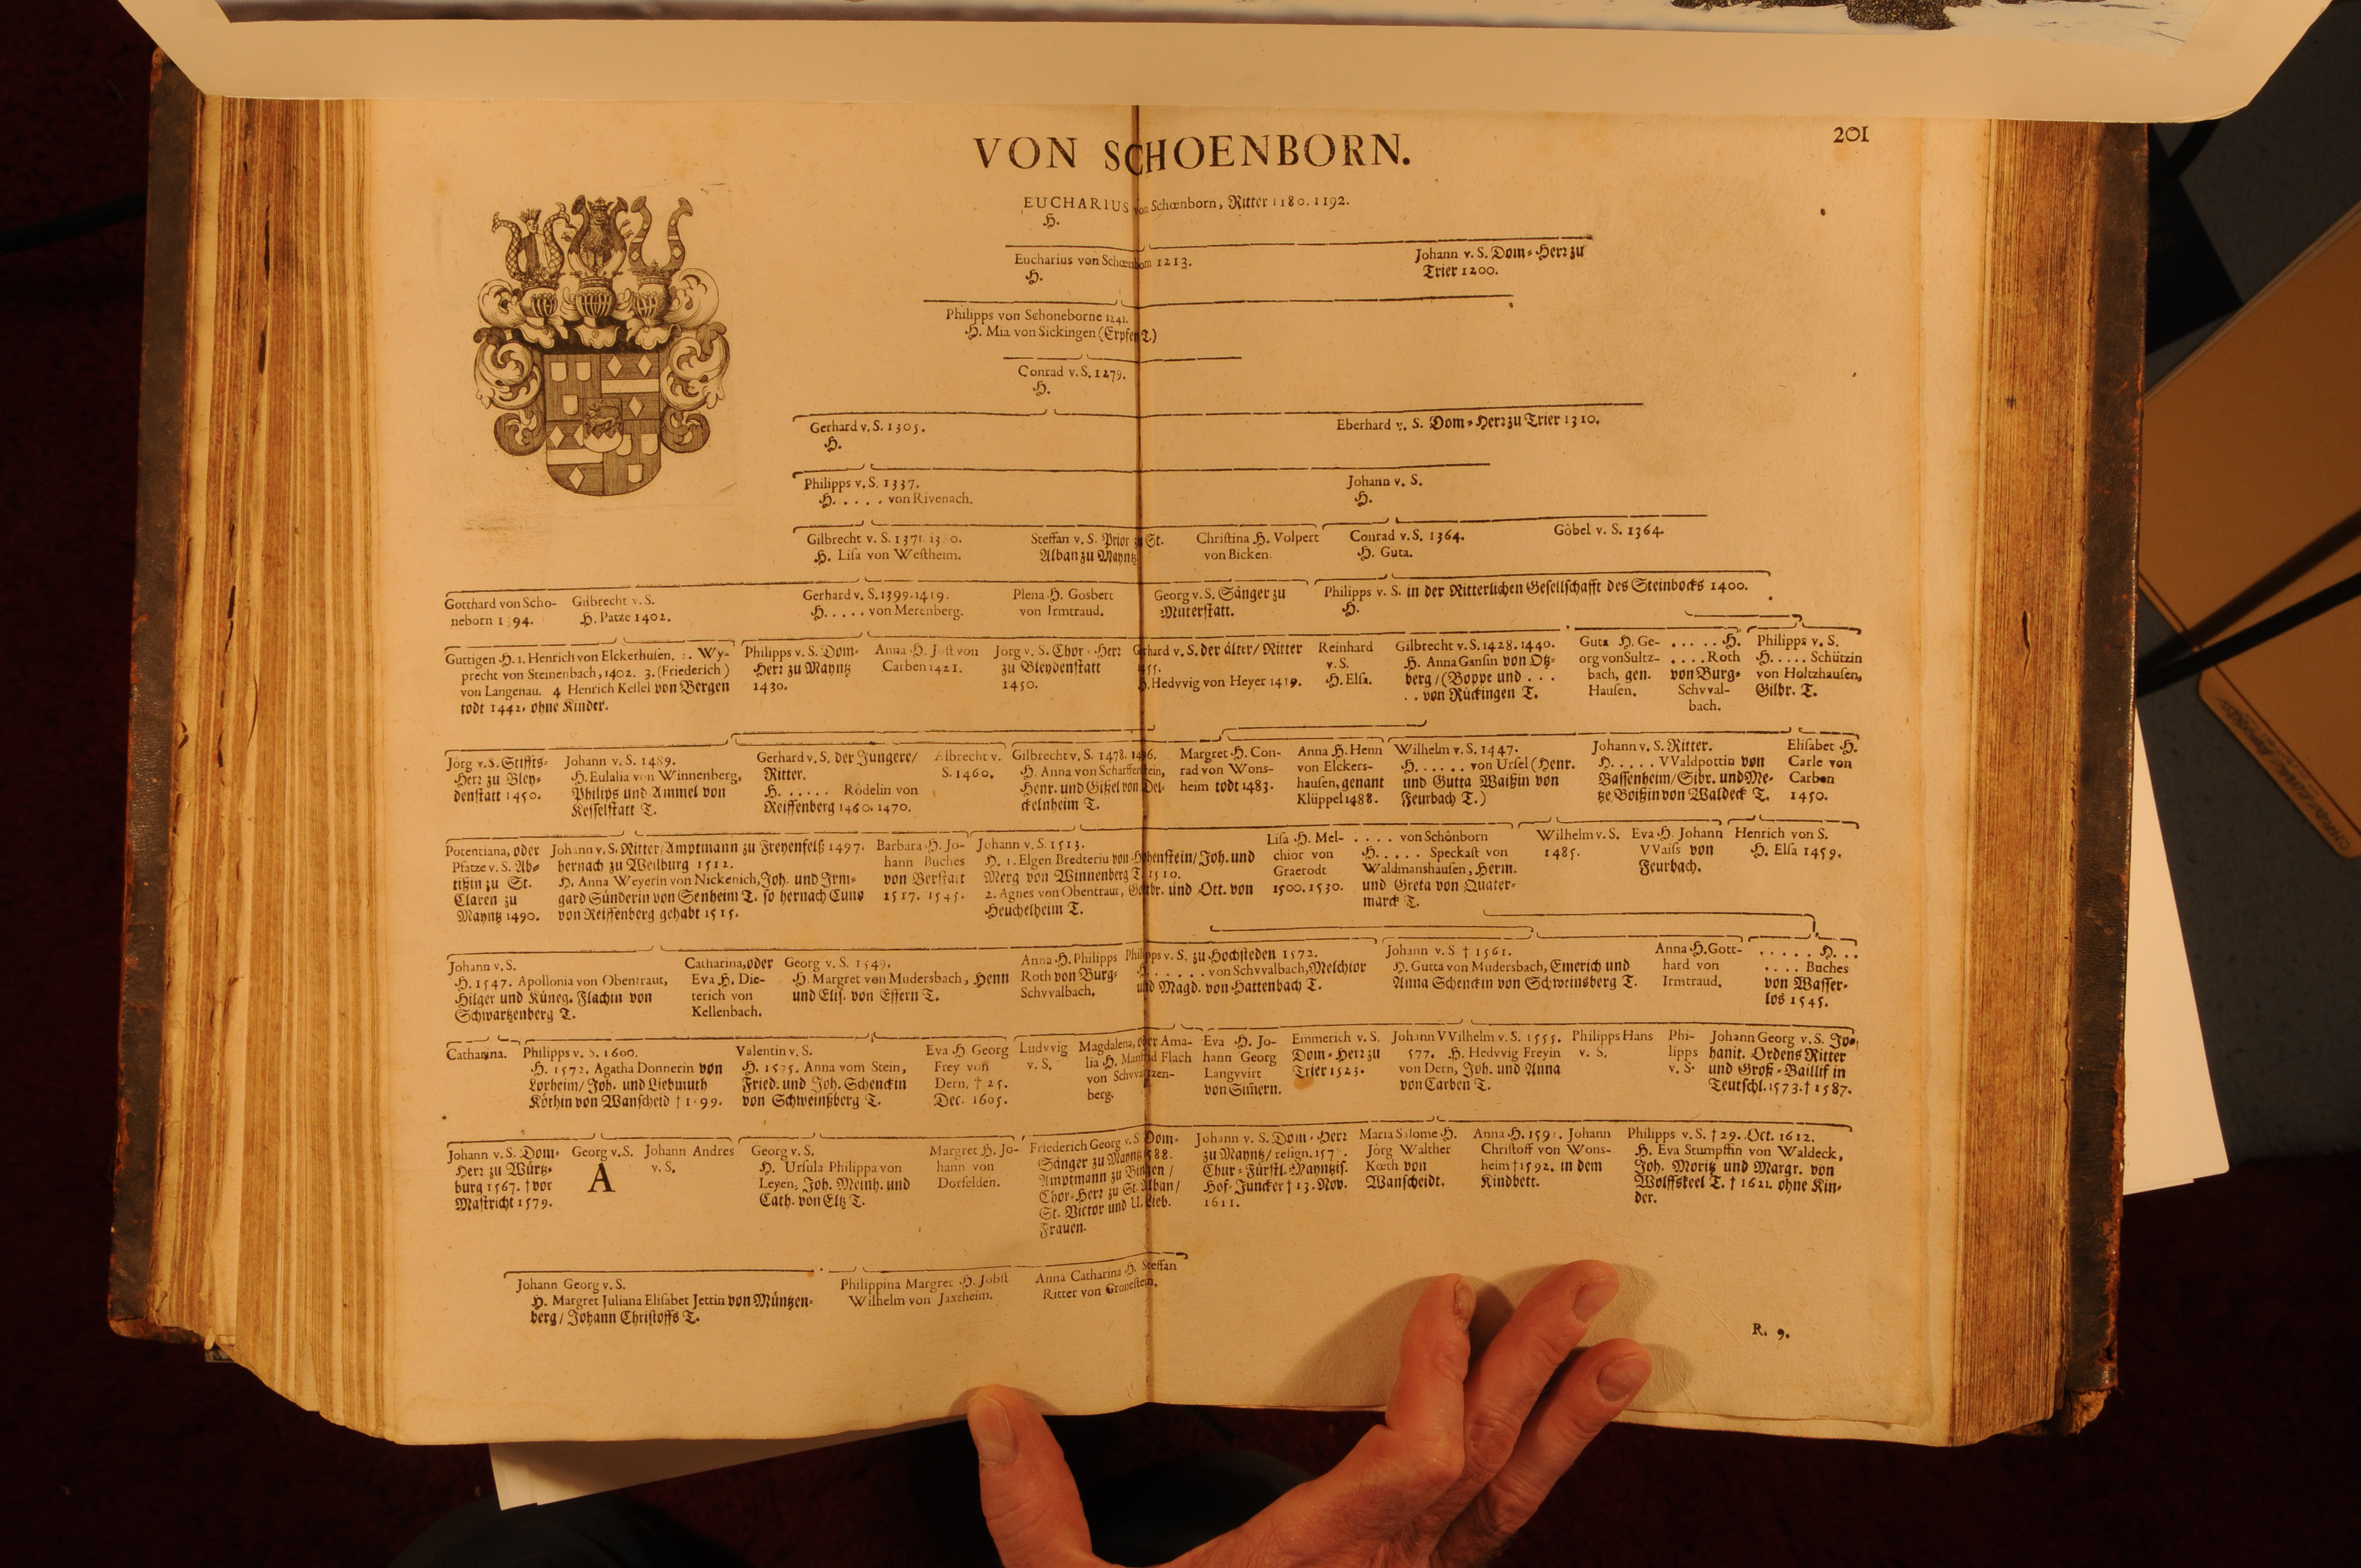 VON SCHOENBORN.
201
EUCHARIUS von Schœnborn, Ritter 1180. 1192.
H.
Eucharius von Schœnborn 1213.
H.
Johann v. S. Dom-Herr zu
Trier 1200.
Philipps von Schoneborne 1241.
H. Mia von Sickingen (Erpfen T.)
Conrad v. S. 1279.
H.
Gerhard v. S. 1305.
H.
Eberhard v. S. Dom-Herr zu Trier 1310.
Philipps v. S. 1337.
H. . . . . von Rivenach.
Johann v. S.
H.
Gilbrecht v. S. 1371.
H. Lisa von Westheim.
Steffan v. S. Prior zu St.
Alban zu Mayntz
Christina H. Volpert
von Bicken.
Conrad v. S. 1364.
H. Guta.
Göbel v. S. 1364.
Gotthard von Scho-
neborn 1394.
Gilbrecht v. S.
H. Patze 1402.
Gerhard v. S. 1399. 1419.
H. . . . . von Merenberg.
Plena H. Gosbert
von Irmtraud.
Georg v. S. Sänger zu
Muterstatt.
Philipps v. S. in der Ritterlichen Gesellschafft des Steinbocks 1400.
H.
Guttigen H. 1. Henrich von Elckerhusen. 2. Wy-
precht von Steinenbach, 1402. 3. (Friederich)
von Langenau. 4 Henrich Kessel von Bergen
todt 1442. ohne Kinder.
Philipps v. S. Dom-
Herr zu Mayntz
1430.
Anna H. Jost von
Carben 1421.
Jörg v. S. Chor-Herr
zu Bleydenstatt
1450.
Gerhard v. S. der älter/ Ritter
1455.
H. Hedvvig von Heyer 1419.
Reinhard
v. S.
H. Elsa.
Gilbrecht v. S. 1428. 1440.
H. Anna Gansin von Otz-
berg/ (Boppe und . . .
. . von Rückingen T.
Guta H. Ge-
org von Sultz-
bach, gen.
Hausen.
. . . . . H.
. . . . Roth
von Burg-
Schvval-
bach.
Philipps v. S.
H. . . . . Schützin
von Holtzhausen,
Gilbr. T.
Jörg v. S. Stiffts-
Herr zu Bley-
denstatt 1450.
Johann v. S. 1489.
H. Eulalia von Winnenberg,
Philips und Ammel von
Kesselstatt T.
Gerhard v. S. der Jungere/
Ritter.
H. . . . . . Rödelin von
Reiffenberg 1460. 1470.
Albrecht v.
S. 1460.
Gilbrecht v. S. 1478. 1496.
H. Anna von Scharffenstein,
Henr. und Gißel von Del-
ckelnheim T.
Margret H. Con-
rad von Wons-
heim todt 1483.
Anna H. Henn
von Elckers-
hausen, genant
Klüppel 1488.
Wilhelm v. S. 1447.
H. . . . . . von Ursel (Henr.
und Gutta Waißin von
Feurbach T.)
Johann v. S. Ritter.
H. . . . . VValdpottin von
Bassenheim/ Sibr. und Me-
tze Boißin von Waldeck T.
Elisabet H.
Carle von
Carben
1450.
Potentiana, oder
Pfatze v. S. Ab-
tißin zu St.
Claren zu
Mayntz 1490.
Johann v. S. Ritter/ Amptmann zu Freyenfelß 1497.
hernach zu Weilburg 1512.
H. Anna Weyerin von Nickenich, Joh. und Irm-
gard Sünderin von Senheim T. so hernach Cuno
von Reiffenberg gehabt 1515.
Barbara H. Jo-
hann Buches
von Berstatt
1517. 1545.
Johann v. S. 1513.
H. 1. Elgen Bredteriu von Hohenstein/ Joh. und
Merg von Winnenberg T. 1510.
2. Agnes von Obentraut, Gottbr. und Ott. von
Heuchelheim T.
Lisa H. Mel-
chior von
Graerodt
1500. 1530.
. . . . von Schönborn
H. . . . . Speckast von
Waldmanshausen, Herm.
und Greta von Quater-
marck T.
Wilhelm v. S.
1485.
Eva H. Johann
VVaiss von
Feurbach.
Henrich von S.
H. Elsa 1459.
Johann v. S.
H. 1547. Apollonia von Obentraut,
Hilger und Küneg. Flachin von
Schwartzenberg T.
Catharina, oder
Eva H. Die-
terich von
Kellenbach.
Georg v. S. 1549.
H. Margret von Mudersbach, Henn
und Elis. von Effern T.
Anna H. Philipps
Roth von Burg-
Schvvalbach.
Philipps v. S. zu Hochsteden 1572.
H. . . . . . von Schvvalbach, Melchior
und Magd. von Hattenbach T.
Johann v. S. † 1561.
H. Gutta von Mudersbach, Emerich und
Anna Schenckin von Schweinsberg T.
Anna H. Gott-
hard von
Irmtraud.
. . . . . H. . .
. . . . Buches
von Wasser-
los 1545.
Catharina.
Philipps v. S. 1600.
H. 1572. Agatha Donnerin von
Lorheim/ Joh. und Liebmuth
Köthin von Wanscheid †
Valentin v. S.
H. 1575. Anna vom Stein,
Fried. und Joh. Schenckin
von Schweinßberg T.
Eva H. Georg
Frey von
Dern, † 25.
Dec. 1605.
Ludvvig
v. S.
Magdalena, oder Ama-
lia H. Manfrid Flach
von Schvvartzen-
berg.
Eva H. Jo-
hann Georg
Langvvirt
von Sim̃ern.
Emmerich v. S.
Dom-Herr zu
Trier 1523.
Johann VVilhelm v. S. 1555.
577. H. Hedvvig Freyin
von Dern, Joh. und Anna
von Carben T.
Philipps Hans
v. S.
Phi-
lipps
v. S.
Johann Georg v. S. Jo-
hanit. Ordens Ritter
und Groß-Baillif in
Teutschl. 1573. † 1587.
Johann v. S. Dom-
Herr zu Würtz-
burg 1567. † vor
Mastricht 1579.
Georg v. S.
A
Johann Andres
v. S.
Georg v. S.
H. Ursula Philippa von
Leyen, Joh. Meinh. und
Cath. von Eltz T.
Margret H. Jo-
hann von
Dorfelden.
Friederich Georg v. S. Dom-
Sänger zu Mayntz 1588.
Amptmann zu Bingen/
Chor-Herr zu St. Alban/
St. Victor und U. Lieb.
Frauen.
Johann v. S. Dom-Herr
zu Mayntz/ resign.
Chur-Fürstl. Mayntzis.
Hof-Juncker † 13. Nov.
1611.
Maria Salome H.
Jörg Walther
Kœth von
Wanscheidt.
Anna H. Johann
Christoff von Wons-
heim † 1592. in dem
Kindbett.
Philipps v. S. † 29. Oct. 1612.
H. Eva Stumpffin von Waldeck,
Joh. Moritz und Margr. von
Wolffskeel T. † 1621. ohne Kin-
der.
Johann Georg v. S.
H. Margret Juliana Elisabet Jettin von Müntzen-
berg/ Johann Christoffs T.
Philippina Margret H. Jobst
Wilhelm von Jaxtheim.
Anna Catharina H. Steffan
Ritter von Gronestein.
R. 9.